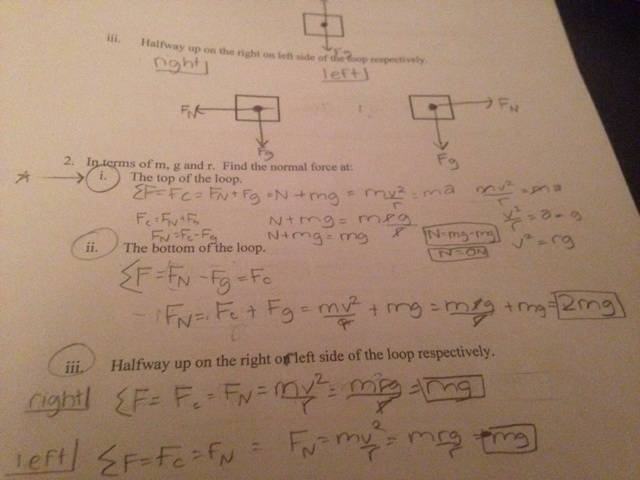 Fg
iii. Halfway up on the right on left side of the loop respectively.
right
left
FN
FN
Fg
Fg
2. In terms of m, g and r. Find the normal force at:
i. The top of the loop.
ΣF=Fc=FN+Fg=N+mg=mv²/r=ma mv²/r=ma
Fc=FN+Fg N+mg=mrg/r v²/r=a=g
FN=Fc-Fg N+mg=mg N=mg-mg v²=rg
N=0N
ii. The bottom of the loop.
ΣF=FN-Fg=Fc
FN=Fc+Fg=mv²/r+mg=mrg/r+mg=2mg
iii. Halfway up on the right or left side of the loop respectively.
right ΣF=Fc=FN=mv²/r=mrg/r=mg
left ΣF=Fc=FN= FN=mv²/r=mrg/r=mg